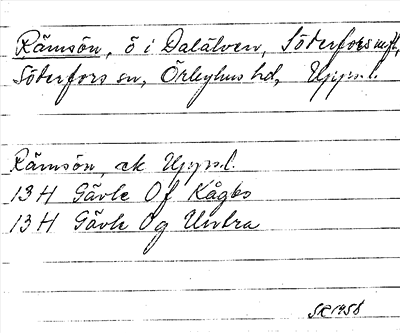 Rämsön, ö i Dalälven, Söderforsmyt,
Söderfors sn, Örbyhus hd, Upps.l.
Rämsön, ek Upps.l.
13 H Gävle Of Kågbo
13 H Gävle Og Untra
SR 1958